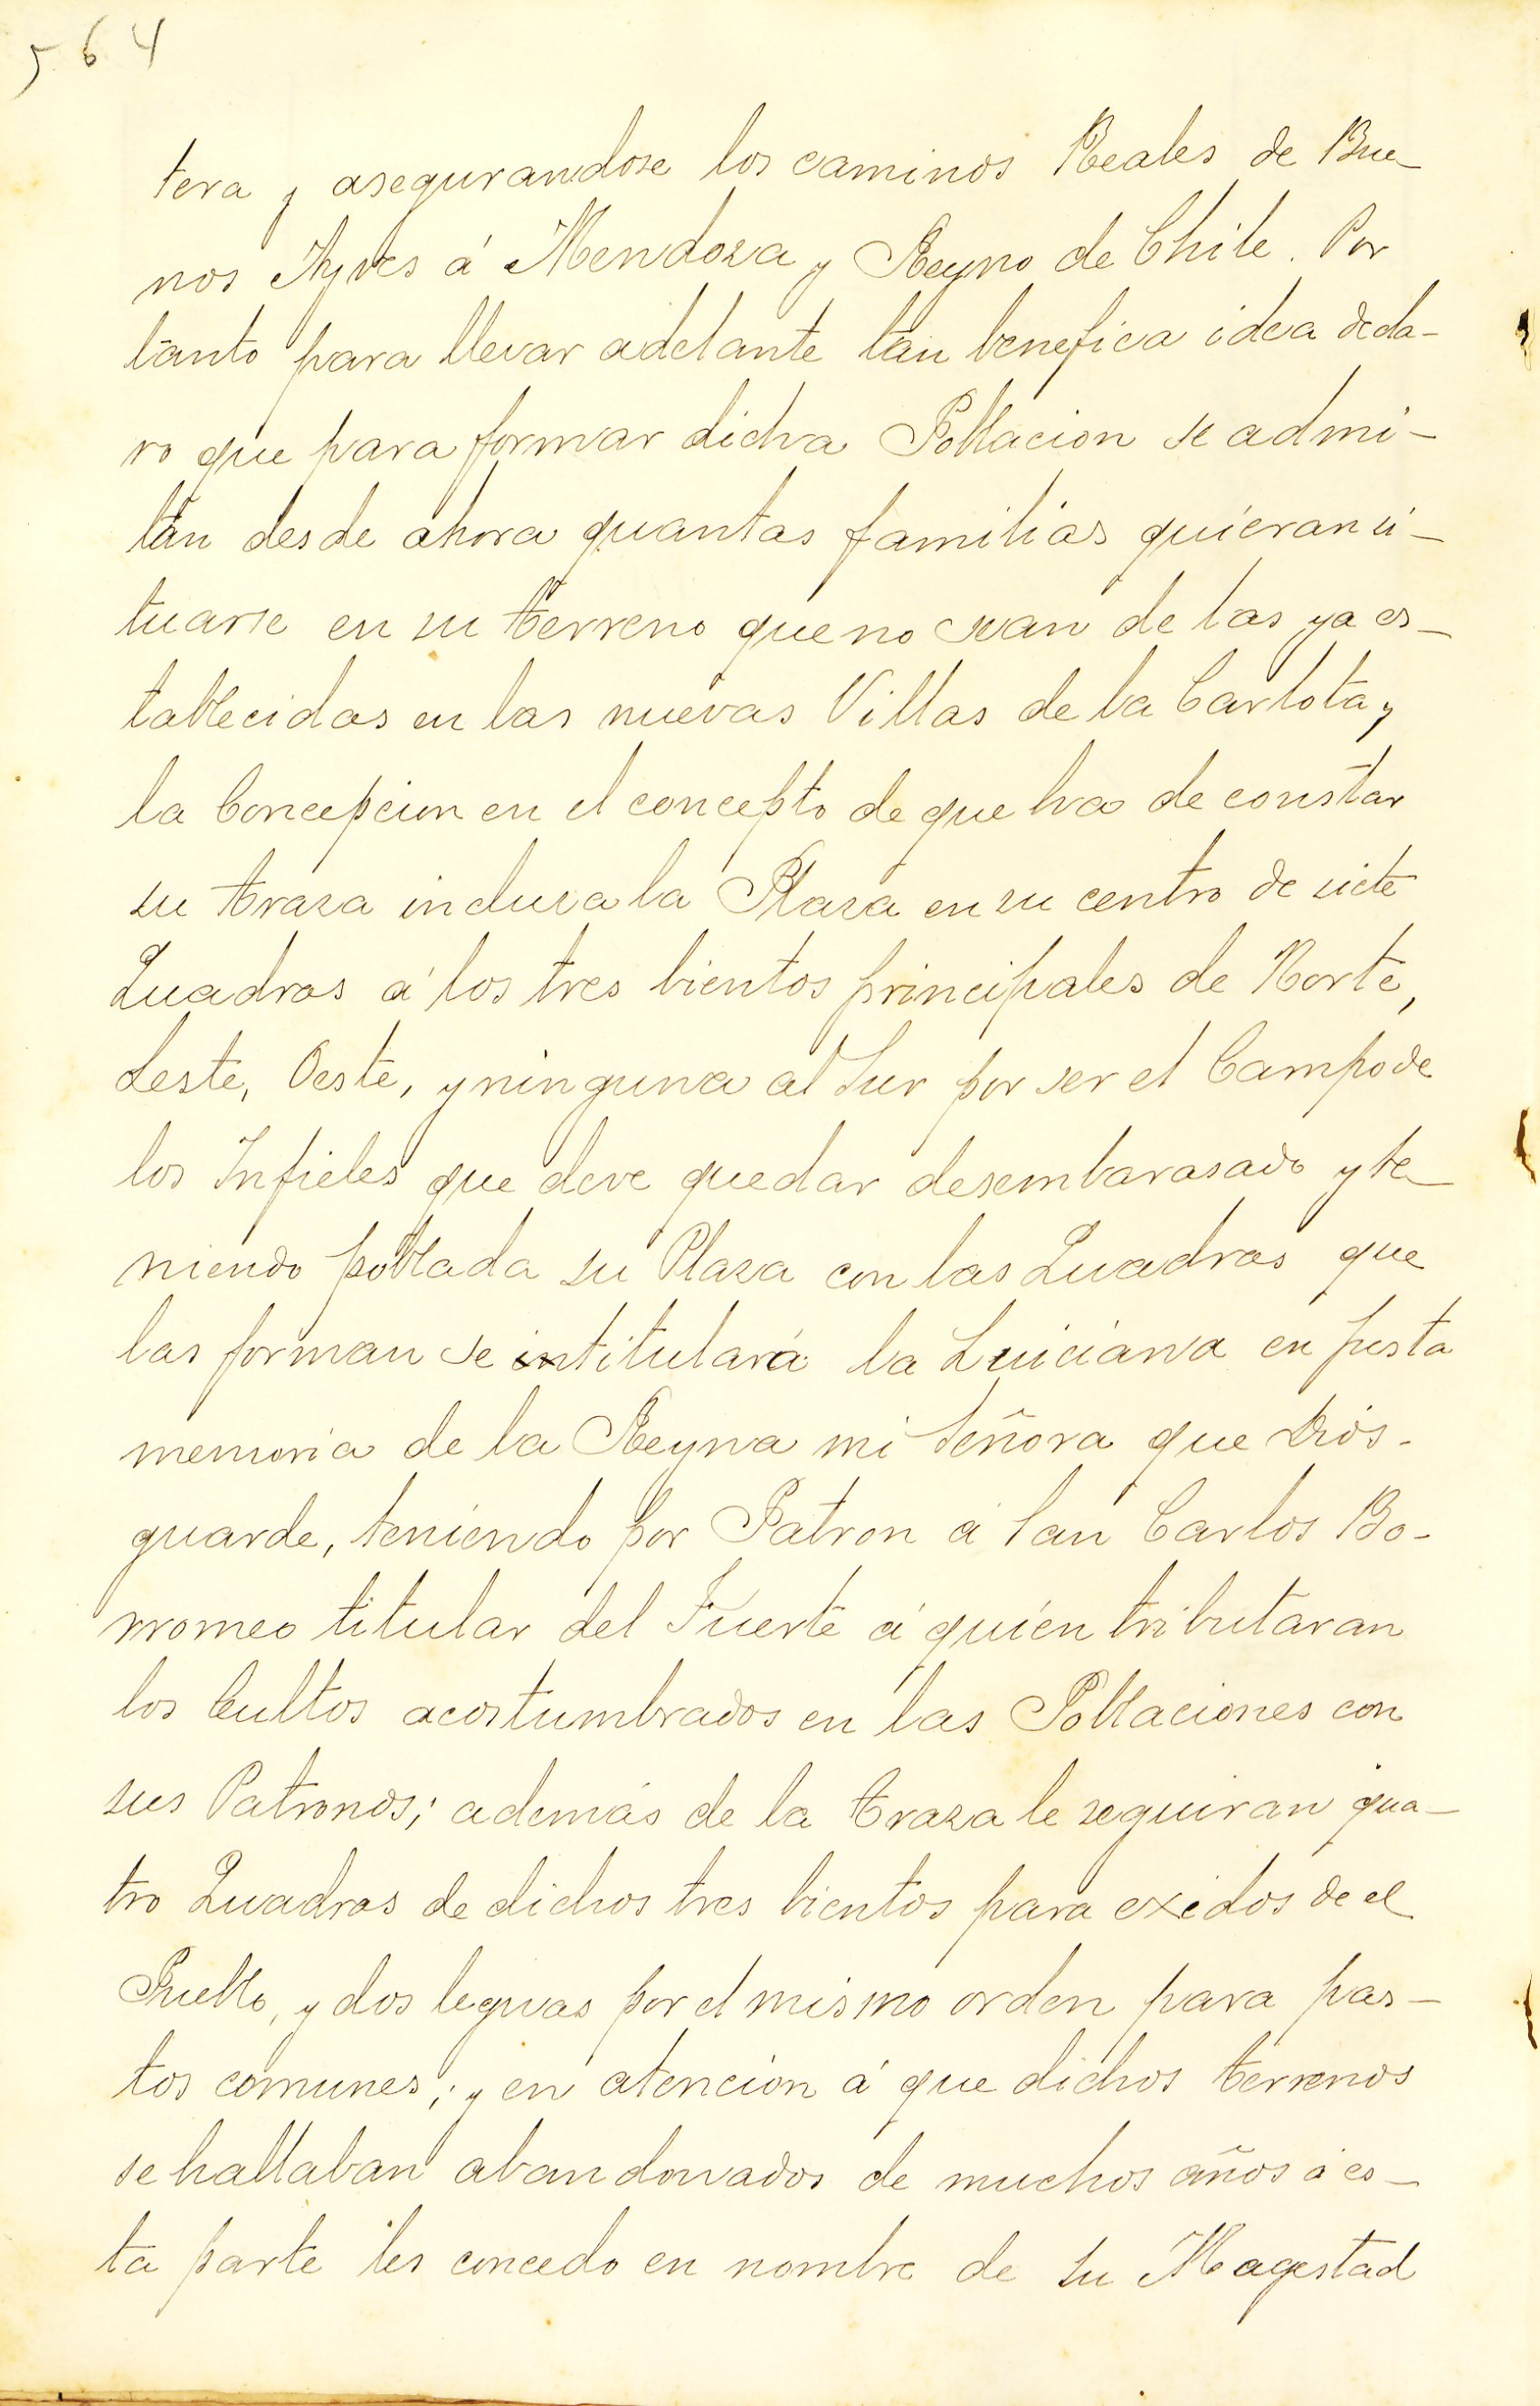 564
tera y asegurandose los caminos Reales de Bue-
nos Ayres á Mendoza y Reyno de Chile. Por
tanto para llevar adelante tan benefica idea decla-
ro que para formar dicha Poblacion se admi-
tan desde ahora quantas familias quieran si-
tuarse en su terreno que no sean de las ya es-
tablecidas en las nuevas Villas de la Carlota y
la Concepcion en el concepto de que ha de constar
su traza inclusa la Plaza en su centro de siete
Quadras á los tres bientos principales de Norte,
Leste, Oeste, y ninguna al Sur por ser el Campo de
los Infieles que deve quedar desembarasado y te-
niendo poblada su Plaza con las Quadras que
las forman se intitulará la Luiciana en justa
memoria de la Reyna mi Señora que Dios-
guarde, teniendo por Patron á San Carlos Bo-
rromeo titular del Fuerte á quien tributaran
los Cultos acostumbrados en las Poblaciones con
sus Patronos; además de la traza le seguiran qua-
tro Quadras de dichos tres bientos para exidos de el
Pueblo, y dos leguas por el mismo orden para pas-
tos comunes; y en atencion á que dichos terrenos
se hallaban abandonados de muchos años á es-
ta parte les concedo en nombre de Su Magestad